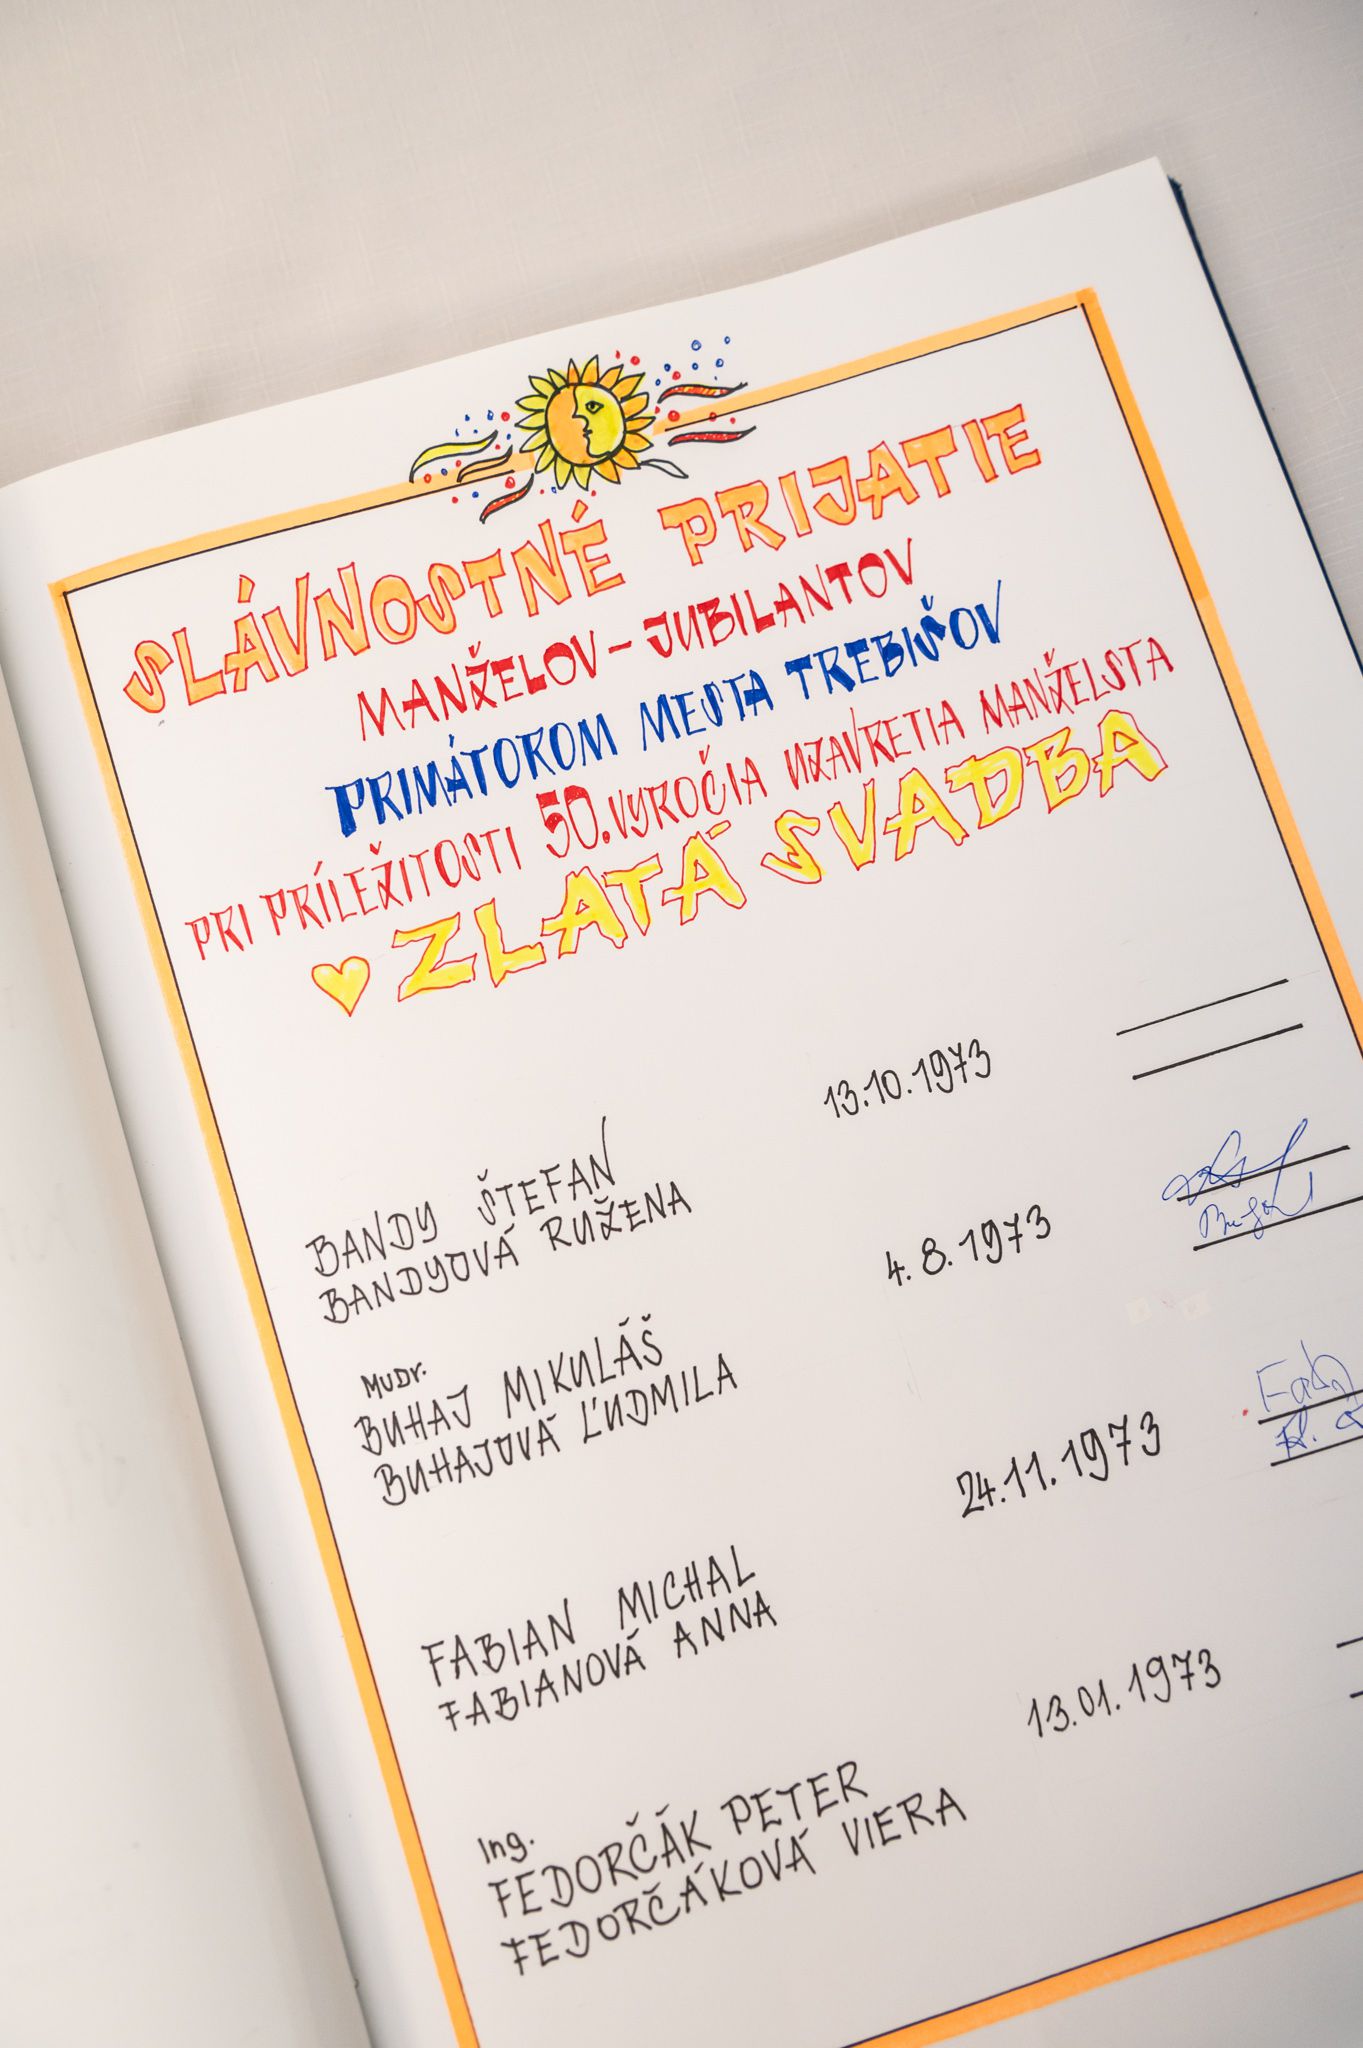 SLÁVNOSTNÉ PRIJATIE
MANŽELOV-JUBILANTOV
PRIMÁTOROM MESTA TREBIŠOV
PRI PRÍLEŽITOSTI 50. VYROČIA UZAVRETIA MANŽELSTA
ZLATÁ SVADBA
13.10.1973
BANDY ŠTEFAN
BANDYOVÁ RUŽENA
4.8.1973
MUDr.
BUHAJ MIKULÁŠ
BUHAJOVÁ ĽUDMILA
24.11.1973
FABIAN MICHAL
FABIANOVÁ ANNA
13.01.1973
Ing.
FEDORČÁK PETER
FEDORČÁKOVÁ VIERA